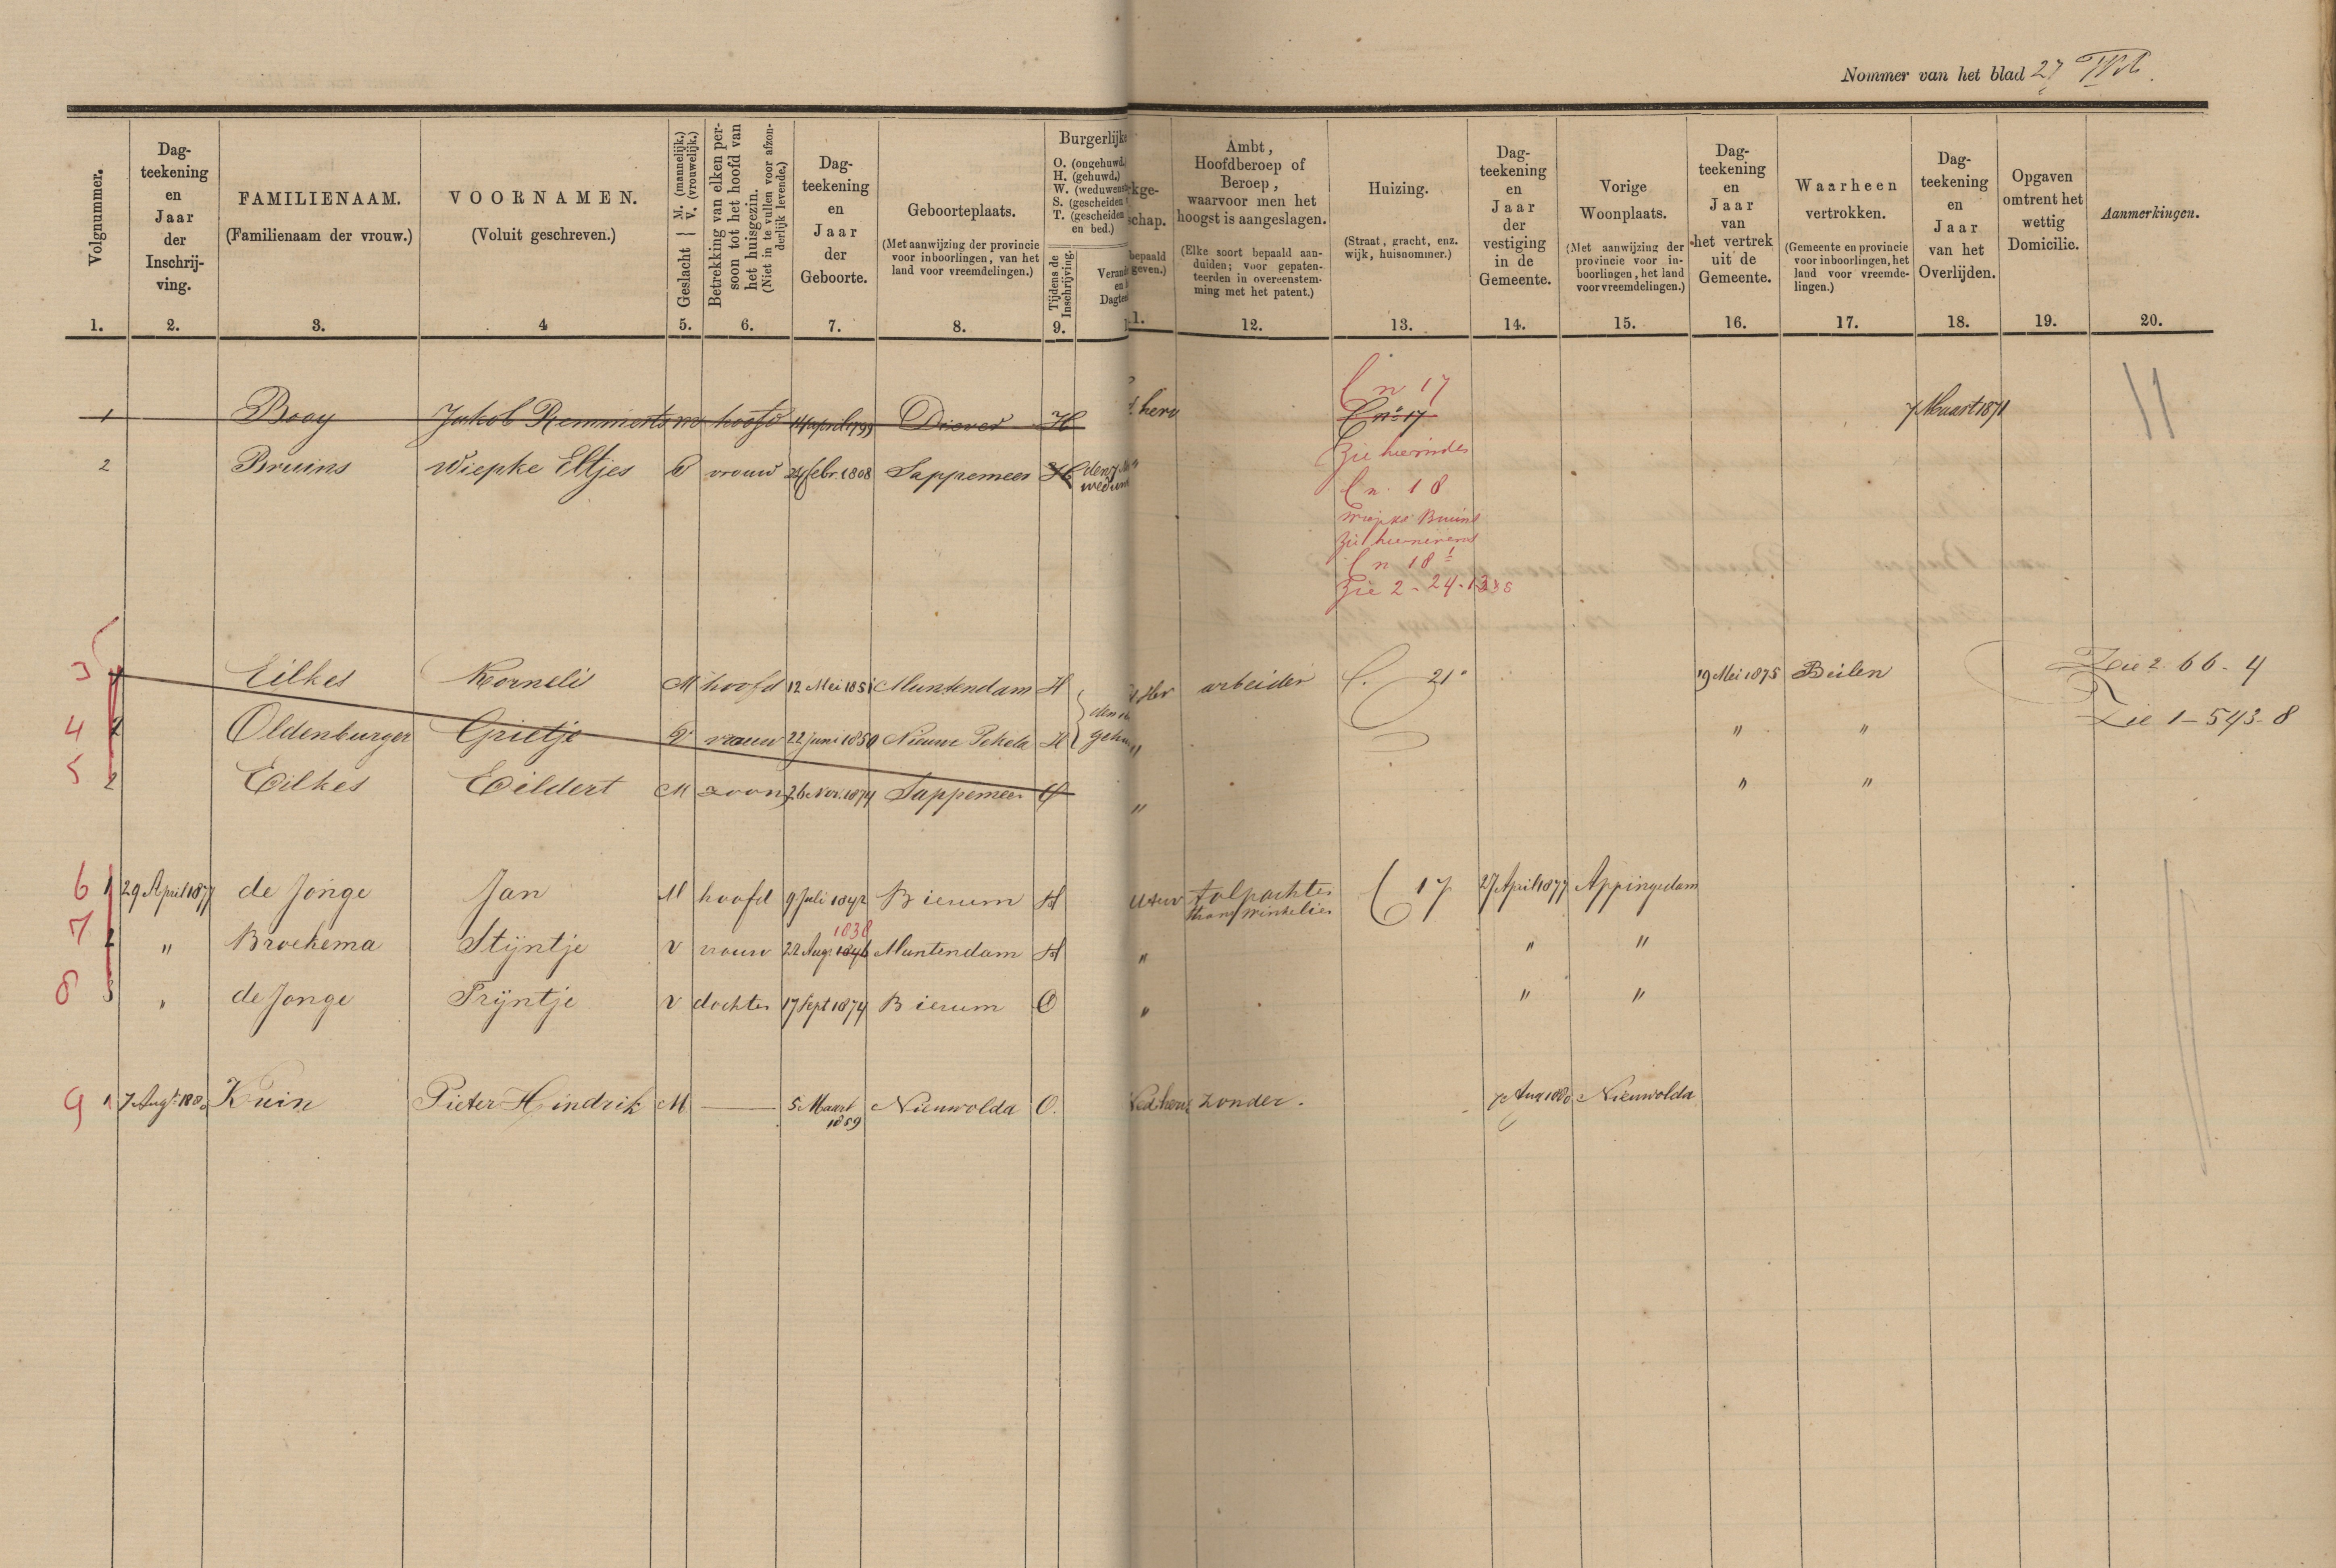 Nommer van het blad 27
Volgnummer.
1.
Dag-
teekening
en
Jaar
der
Inschrij-
ving.
2.
FAMILIENAAM.
(Familienaam der vrouw.)
3.
VOORNAMEN.
(Voluit geschreven.)
4
Geslacht { M. (mannelijk.)
V. (vrouwelijk.)
5.
Betrekking van elken per-
soon tot het hoofd van
het huisgezin.
(Niet in te vullen voor afzon-
derlijk levende.)
6.
Dag-
teekening
en
Jaar
der
Geboorte.
7.
Geboorteplaats.
(Met aanwijzing der provincie
voor inboorlingen, van het
land voor vreemdelingen.)
8.
Burgerlijke
O. (ongehuwd.)
H. (gehuwd.)
W. (weduwen
S. (gescheiden
T. (gescheiden
en bed.)
Tijdens de
Inschrijving.
9.
Verand
en
Dagtee
1
kge-
schap.
bepaald
geven.)
1.
Ambt,
Hoofdberoep of
Beroep,
waarvoor men het
hoogst is aangeslagen.
(Elke soort bepaald aan-
duiden; voor gepaten-
teerden in overeenstem-
ming met het patent.)
12.
Huizing.
(Straat, gracht, enz.
wijk, huisnommer.)
13.
Dag-
teekening
en
Jaar
der
vestiging
in de
Gemeente.
14.
Vorige
Woonplaats.
(Met aanwijzing der
provincie voor in-
boorlingen, het land
voor vreemdelingen.)
15.
Dag-
teekening
en
Jaar
van
het vertrek
uit de
Gemeente.
16.
Waarheen
vertrokken.
(Gemeente en provincie
voor inboorlingen, het
land voor vreemde-
lingen.)
17.
Dag-
teekening
en
Jaar
van het
Overlijden.
18.
Opgaven
omtrent het
wettig
Domicilie.
19.
Aanmerkingen.
20.
1 Booy Jakob Remmerts m hoofd 14 april 1799 Diever H herv C n 17 7 Maart 1871
C no 17
Zie hieronder
2 Bruins Wiepke Eltjes V vrouw 24 febr. 1808 Sappemeer H den 7
C n. 18
Wiepke Bruins
Zie hiernevens
C n 18 1
Zie 2 - 24 - 1385
3 1 Eilkes Kornelis M hoofd 12 Mei 1851 Muntendam H Her arbeider C. 21 19 Mei 1875 Beilen Zie 2. 66 - 4
4 2 Oldenburger Grietje V vrouw 22 Juni 1850 Nieuwe Pekela H " " " Zie 1 - 543 - 8
5 2 Eilkes Eildert M zoon 26 Nov. 1874 Sappemeer O " " "
6 1 29 April 1877 de Jonge Jan M hoofd 9 Juli 1842 Bierum H tolpachter C 17 27 April 1877 Appingedam
thans winkelier
1838
7 2 " Broekema Stijntje V vrouw 22 Aug. 1846 Muntendam H " " "
8 3 " de Jonge Trijntje V dochter 17 Sept 1874 Bierum O " " "
9 1 7 Augt 1880 Kuin Pieter Hindrik M — 5 Maart 1859 Nieuwolda O. Ned herv zonder. 7 Aug 1880 Nieuwolda